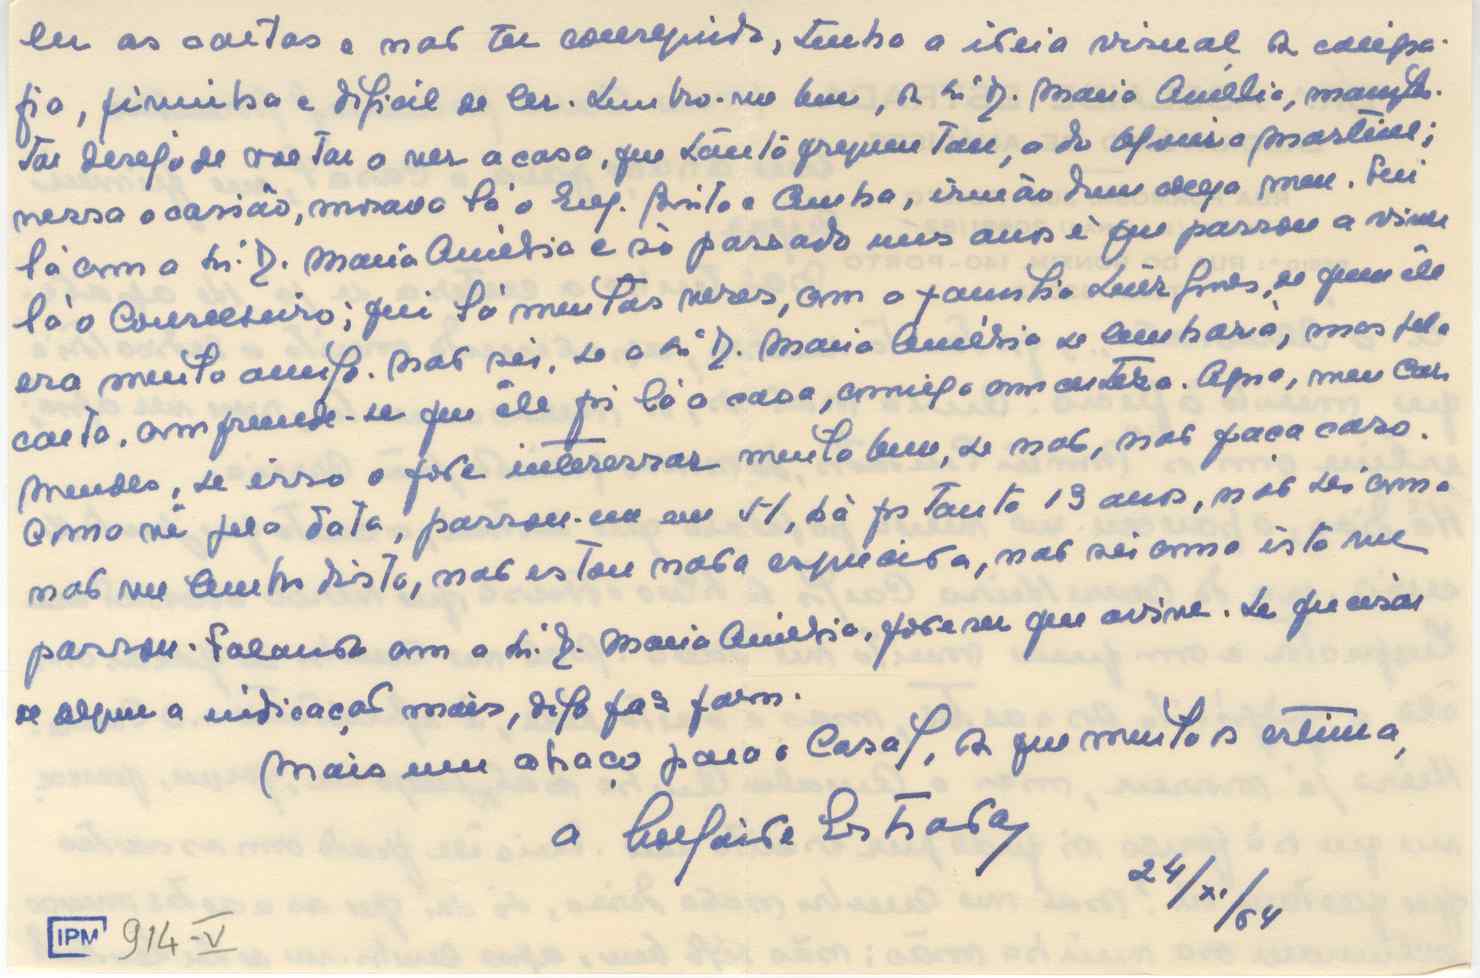 ler as cartas e não ter conseguido, tenho a ideia visual da caligra-
fia, fininha e dificil de ler. Lembro-me bem, da Sr.ª D. Maria Amélia, manifes-
tar desejo de voltar a ver a casa, que tanto frequentou, a do Oliveira Martins;
nessa ocasião, morava lá o Eng. Pinto e Cunha, irmão dum colega meu. Fui
lá com a Sr.ª D. Maria Amélia e só passado uns anos é que passou a viver
lá o Conselheiro; fui lá muitas vezes, com a familia Luís Gomes, de quem êle
era muito amigo. Não sei, se a Sr.ª D. Maria Amélia se lembrará; mas pela
carta, compreende-se que êle foi lá a casa, comigo com certeza. Agora, meu caro
Mendes, se isso o pode interessar muito bem, se não, não faça caso.
Como vê pela data, passou-se em 51, há portanto 13 anos, não sei como
não me lembro disto, não estou nada esquecida, não sei como isto me
passou. Falando com a Sr.ª D. Maria Amélia, pode ser que avive. Se precisar
de alguma indicação mais, diga faz favor.
Mais um abraço para o Casal, da que muito os estima,
a Estrada
24/XI/64
IPM 914-V